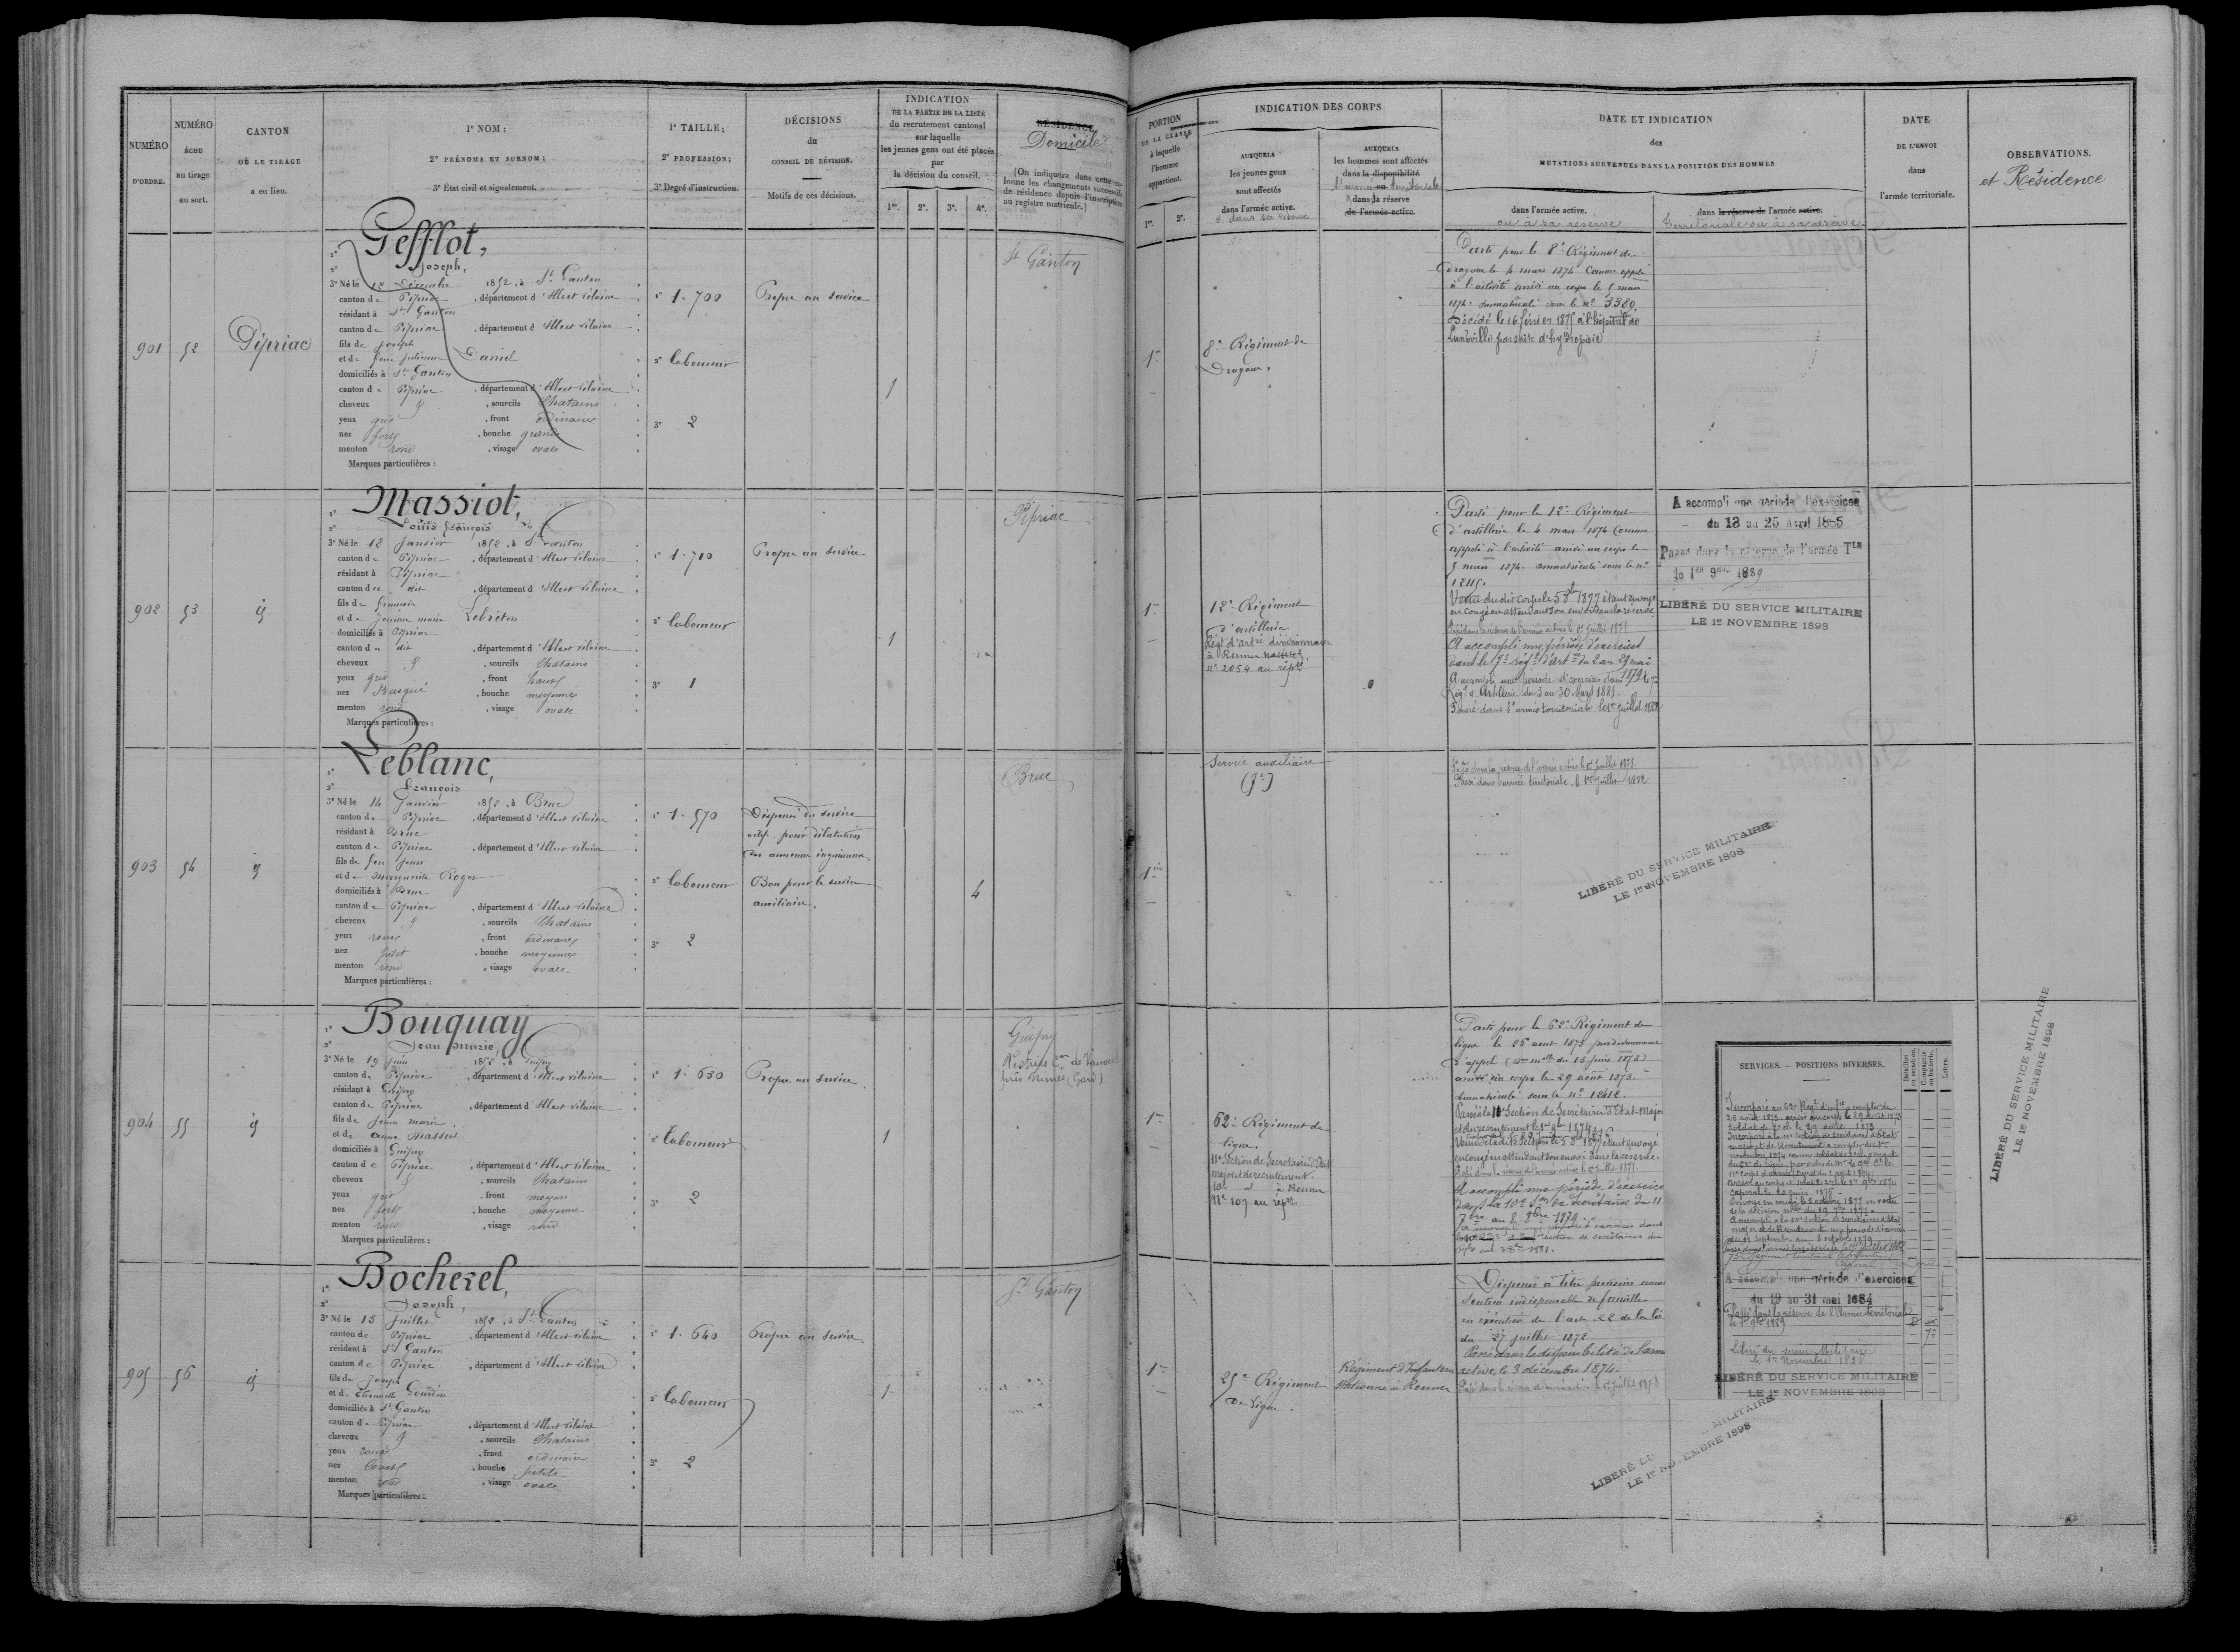 NUMÉRO D'ORDRE.
NUMÉRO ÉCHU au tirage au sort.
CANTON OÙ LE TIRAGE a eu lieu.
1° NOM;
2° PRÉNOMS ET SURNOM;
3° État civil et signalement.
1° TAILLE;
2° PROFESSION;
3° Degré d'instruction.
DÉCISIONS du CONSEIL DE RÉVISION.
Motifs de ces décisions.
INDICATION
DE LA PARTIE DE LA LISTE
du recrutement cantonal
sur laquelle
les jeunes gens ont été placés
par
la décision du conseil.
1re. 2e. 3e. 4e.
RÉSIDENCE
Domicile
(On indiquera dans cette colonne les changements successifs de résidence depuis l'inscription au registre matricule.)
PORTION DE LA CLASSE à laquelle l'homme appartient.
1re. 2e.
INDICATION DES CORPS
AUXQUELS les jeunes gens sont affectés dans l'armée active.
et dans sa réserve
AUXQUELS les hommes sont affectés dans la disponibilité
dans la réserve de l'armée active.
DATE ET INDICATION
des
MUTATIONS SURVENUES DANS LA POSITION DES HOMMES
dans l'armée active.
ou à sa réserve
dans la réserve de l'armée active.
Territoriale ou à sa réserve
DATE DE L'ENVOI dans l'armée territoriale.
OBSERVATIONS.
et Résidence
901
52
Pipriac
1° Gefflot,
2° Joseph,
3° Né le 12 Décembre 1852, à St Ganton
canton de Pipriac, département d'Ille et Vilaine
résidant à St Ganton
canton de Pipriac, département d'Ille et Vilaine
fils de Joseph
et de Daniel
domiciliés à St Ganton
canton de Pipriac, département d'Ille et Vilaine
cheveux, sourcils Chatains
yeux gris, front ordinaire
nez fort, bouche grande
menton rond, visage ovale
Marques particulières :
1° 1.700
2° Laboureur
3° 2
Propre au service
1
St Ganton
1re
8e Régiment de
Dragons.
Parti pour le 8e Régiment de
Dragons le 4 mars 1874 Comme appelé
à l'activité arrivé au corps le 5 mars
1874. Immatriculé sous le n° 3389.
Décédé le 16 février 1875 à l'hôpital de
Lunéville
902
53
id
1° Massiot,
2° Louis François
3° Né le 12 Janvier 1852, à St Ganton
canton de Pipriac, département d'Ille et Vilaine
résidant à Pipriac
canton du dit, département d'Ille et Vilaine
fils de
et de Jeanne Marie Lebreton
domiciliés à Pipriac
canton du dit, département d'Ille et Vilaine
cheveux, sourcils Chatains
yeux gris, front haut
nez Busqué, bouche moyenne
menton rond, visage ovale
Marques particulières :
1° 1.710
2° Laboureur
3° 1
Propre au service
1
Pipriac
1re
12e Régiment
d'artillerie
Régt d'artie divisionnaire
à Rennes
n° 2054 au répre
Parti pour le 12e Régiment
d'artillerie le 4 mars 1874 Comme
appelé à l'activité arrivé au corps le
5 mars 1874. immatriculé sous le n°
A accompli une période d'exercices
A accompli une période d'exercices dans le 7e
Régt d'Artillerie du 3 au 30 Mars 1881.
Passé dans l'armée territoriale le 1er juillet 1882
A accompli une période d'exercices
du 13 au 25 Avril 1885
Passé dans la réserve de l'armée Tle
le 1er 9bre 1889
LIBÉRÉ DU SERVICE MILITAIRE
LE 1er NOVEMBRE 1898
903
54
id
1° Leblanc,
2° François
3° Né le 14 Janvier 1852, à Bruc
canton de Pipriac, département d'Ille et Vilaine
résidant à Bruc
canton de Pipriac, département d'Ille et Vilaine
fils de feu Jean
et de Marguerite Roger
domiciliés à Bruc
canton de Pipriac, département d'Ille et Vilaine
cheveux, sourcils Chatains
yeux roux, front ordinaire
nez petit, bouche moyenne
menton rond, visage ovale
Marques particulières :
1° 1.570
2° Laboureur
3° 2
Dispensé du service
actif. pour dilatation
des anneaux inguinaux.
Bon pour le service
auxiliaire.
4
Bruc
1re
Service auxiliaire
Passé dans la réserve de l'armée active le 1er juillet
Passé dans l'armée territoriale, le 1er Juillet 1882
LIBÉRÉ DU SERVICE MILITAIRE
LE 1er NOVEMBRE 1898
904
55
id
1° Bouquay
2° Jean Marie,
3° Né le 19 Juin 1852, à Guipry
canton de Pipriac, département d'Ille et Vilaine
résidant à Guipry
canton de Pipriac, département d'Ille et Vilaine
fils de Jean Marie.
et de Anne Massiot
domiciliés à Guipry
canton de Pipriac, département d'Ille et Vilaine
cheveux, sourcils Chatains
yeux gris, front moyen
nez fort, bouche moyenne
menton rond, visage rond
Marques particulières :
1° 1.630
2° Laboureur
3° 2
Propre au service
1
Guipry
près Nimes (Gard)
1re
62e Régiment de
ligne.
11e Section de Secrétaires d'État
major et de recrutement.
10e id à Rennes
N° 109 au répre
Parti pour le 62e Régiment de
ligne le 25 août 1873
d'appel
arrivé au corps le 29 août 1873.
Immatriculé sous le n° 1212.
Passé à la 11e Section de Secrétaires d'État-Major
et du recrutement le 1er 9bre 1874
en congé en attendant son envoi dans la réserve.
A accompli une période d'exercices
dans la 10e Son de Secrétaires du 11
7bre au 8 8bre 1879.
SERVICES. — POSITIONS DIVERSES.
Bataillon ou escadron.
Compagnie ou batterie.
Lettre.
Incorporé au 62e Régt d'infie à compter du
25 août 1873. arrivé au corps le 29 Août 1873
Soldat de 2e cl. le 29 août 1873
Caporal le 20 juin 1876
Envoyé en congé le 3 octobre 1877 en vertu
A accompli à la 10e Section de secrétaires d'État
major et de Recrutement une période d'exercices
du 11 Septembre au 8 octobre 1879
A accompli une période d'exercices
du 19 au 31 mai 1884
Passé dans la réserve de l'Armée territoriale
le 1er 9bre 1889
Libéré du service Militaire
le 1er Novembre 1898
LIBÉRÉ DU SERVICE MILITAIRE
LE 1er NOVEMBRE 1898
LIBÉRÉ DU SERVICE MILITAIRE
LE 1er NOVEMBRE 1898
905
56
id
1° Bocherel,
2° Joseph,
3° Né le 13 Juillet 1852, à St Ganton
canton de Pipriac, département d'Ille et Vilaine
résidant à St Ganton
canton de Pipriac, département d'Ille et Vilaine
fils de Joseph
et de Gourdin
domiciliés à St Ganton
canton de Pipriac, département d'Ille et Vilaine
cheveux, sourcils Chatains
yeux roux, front ordinaire
nez Court, bouche petite
menton rond, visage ovale
Marques particulières :
1° 1.640
2° Laboureur
3° 2
Propre au service.
1
St Ganton
1re
25e Régiment
de Ligne.
Régiment d'Infanterie
stationné à Rennes
Dispensé à titre provisoire comme
Soutien indispensable de famille
en exécution de l'art. 22 de la loi
du 27 juillet 1872
Passé dans la disponibilité de l'armée
active, le 3 décembre 1874.
LIBÉRÉ DU MILITAIRE
LE 1er NOVEMBRE 1898